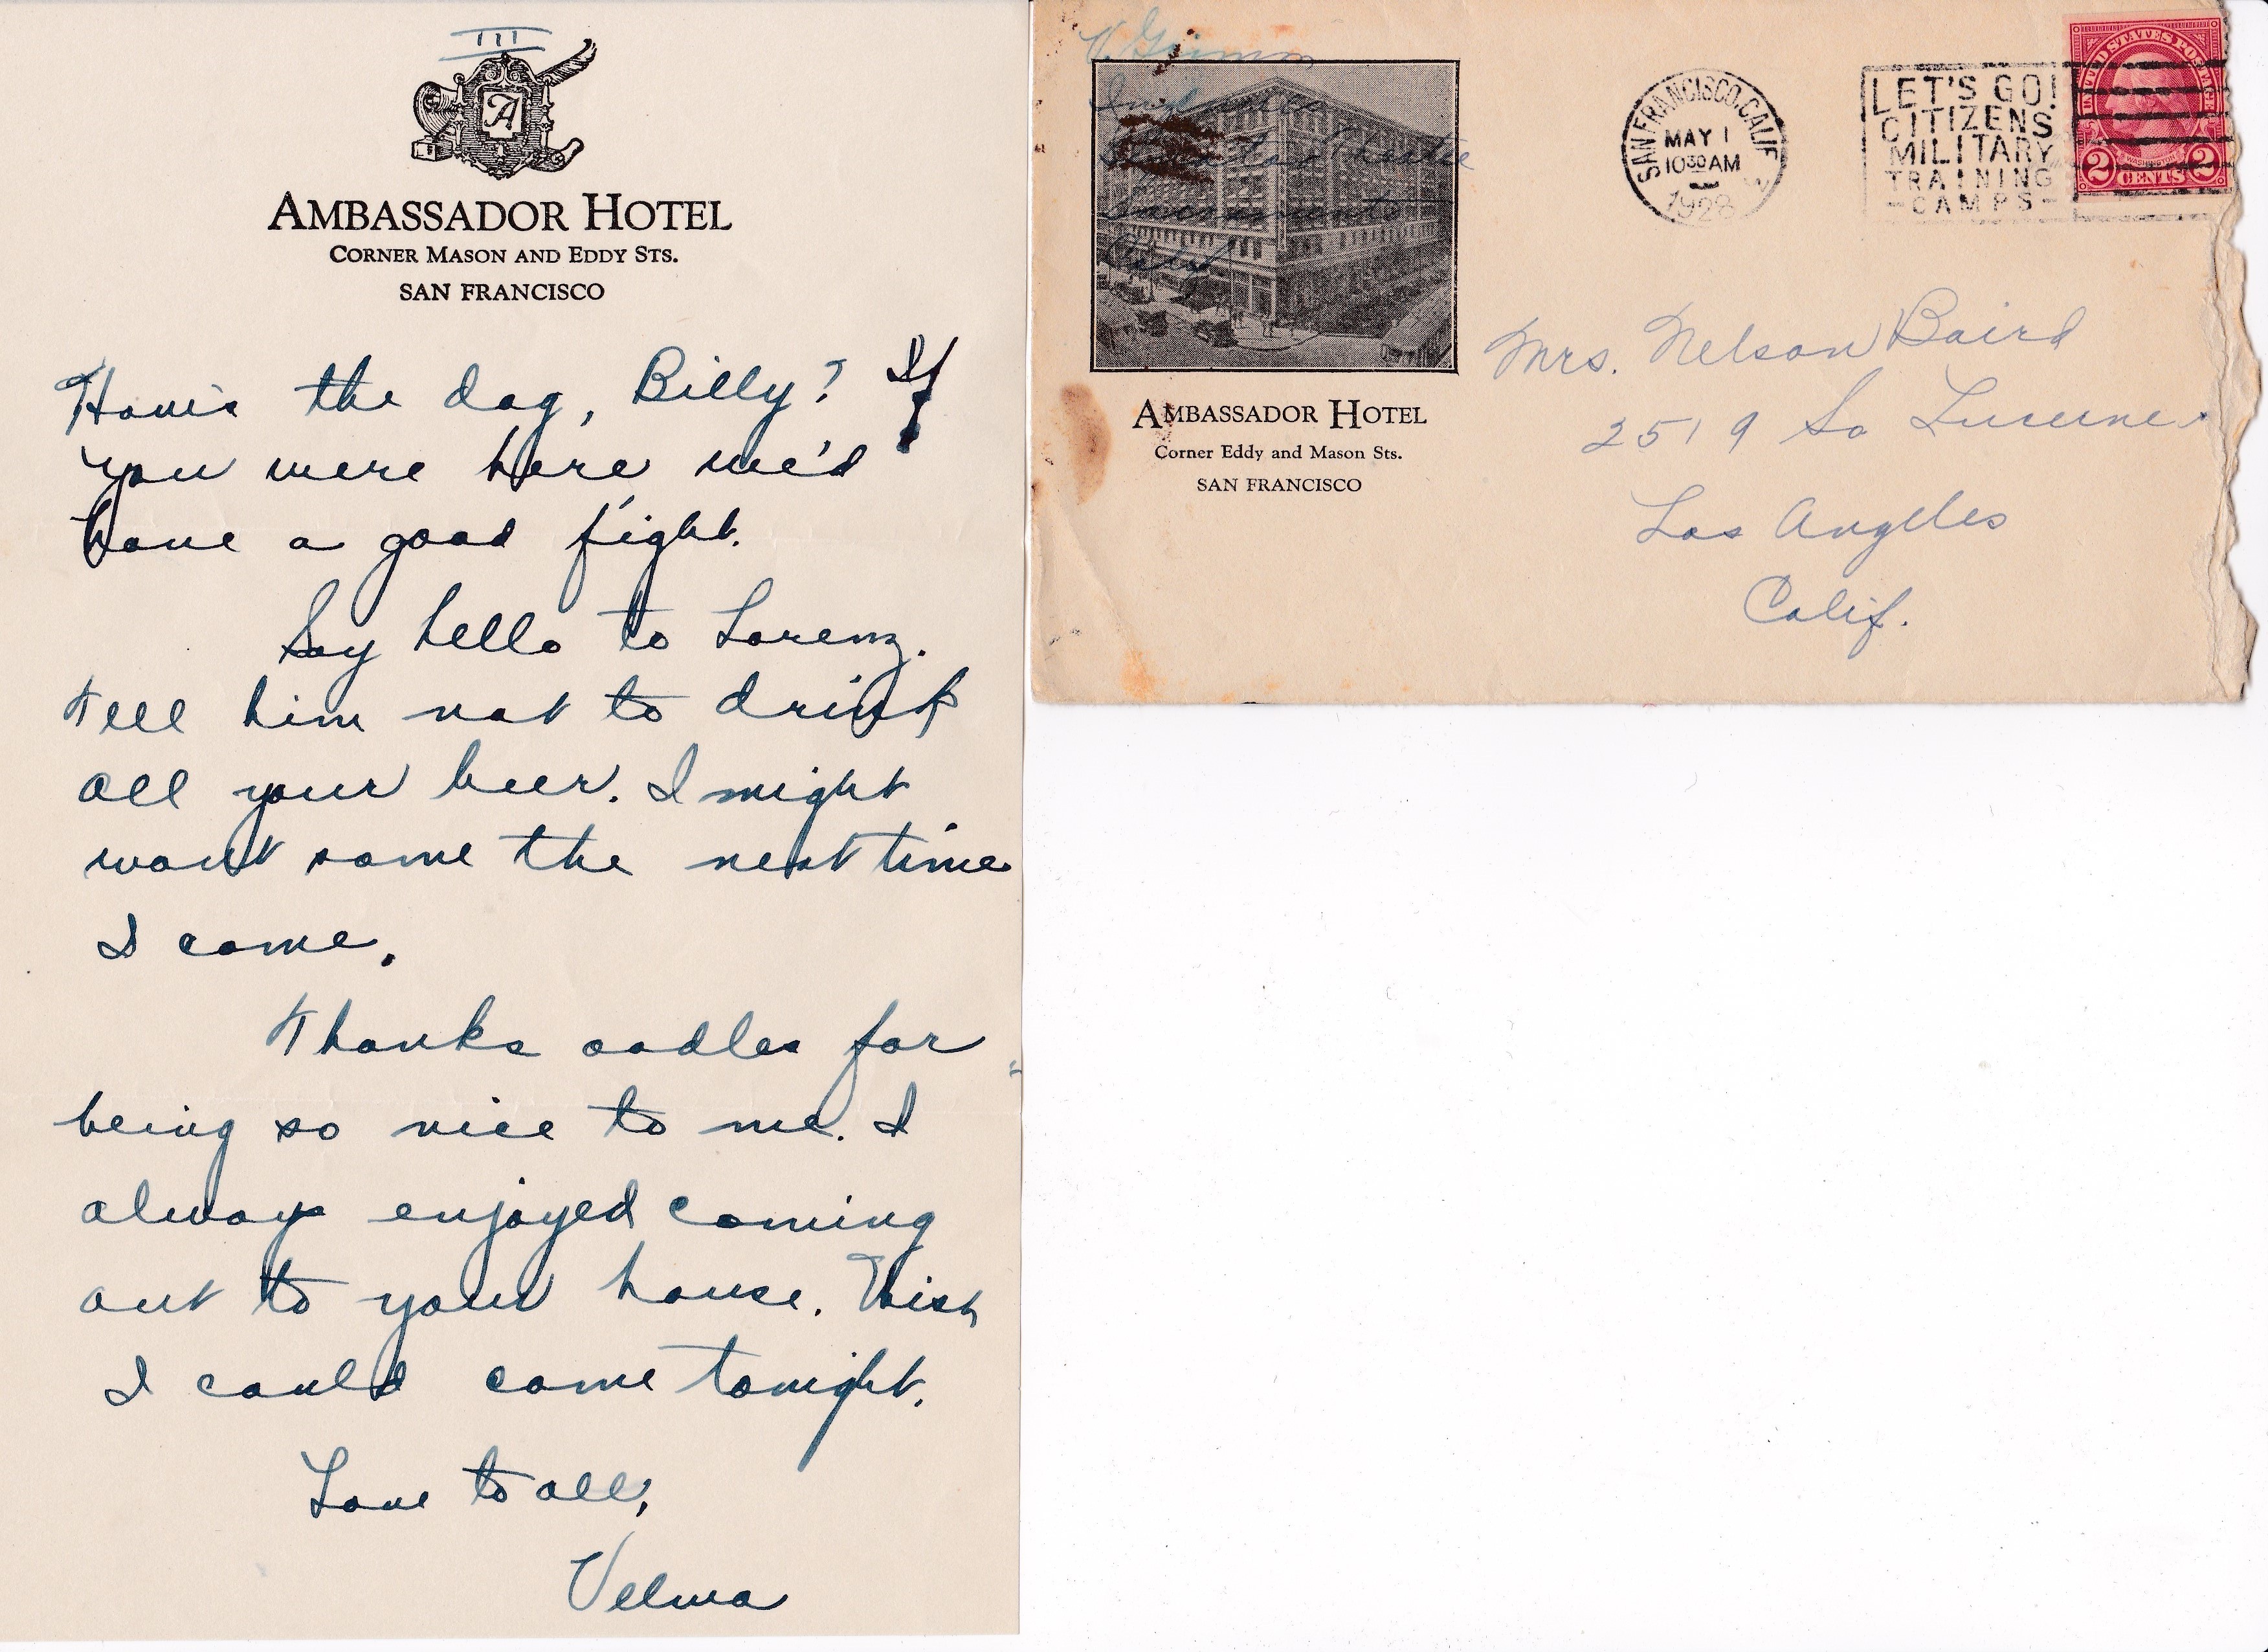 III
A
AMBASSADOR HOTEL
CORNER MASON AND EDDY STS.
SAN FRANCISCO
How's the dog, Billy? If
you were here we'd
have a good fight.
Say hello to Lorenz.
Tell him not to drink
all your beer. I might
want some the next time
I come.
Thanks oodles for
being so nice to me. I
always enjoyed coming
out to your house. Wish
I could come tonight.
Love to all,
Velma
V. Grimm
Theatre
Sacramento
Calif
AMBASSADOR HOTEL
Corner Eddy and Mason Sts.
SAN FRANCISCO
SAN FRANCISCO, CALIF
MAY 1
10 30 AM
1928
LET'S GO!
CITIZENS
MILITARY
TRAINING
-CAMPS-
UNITED STATES POSTAGE
WASHINGTON
2 CENTS 2
Mrs. Nelson Baird
2519 So Lucerne
Los Angeles
Calif.